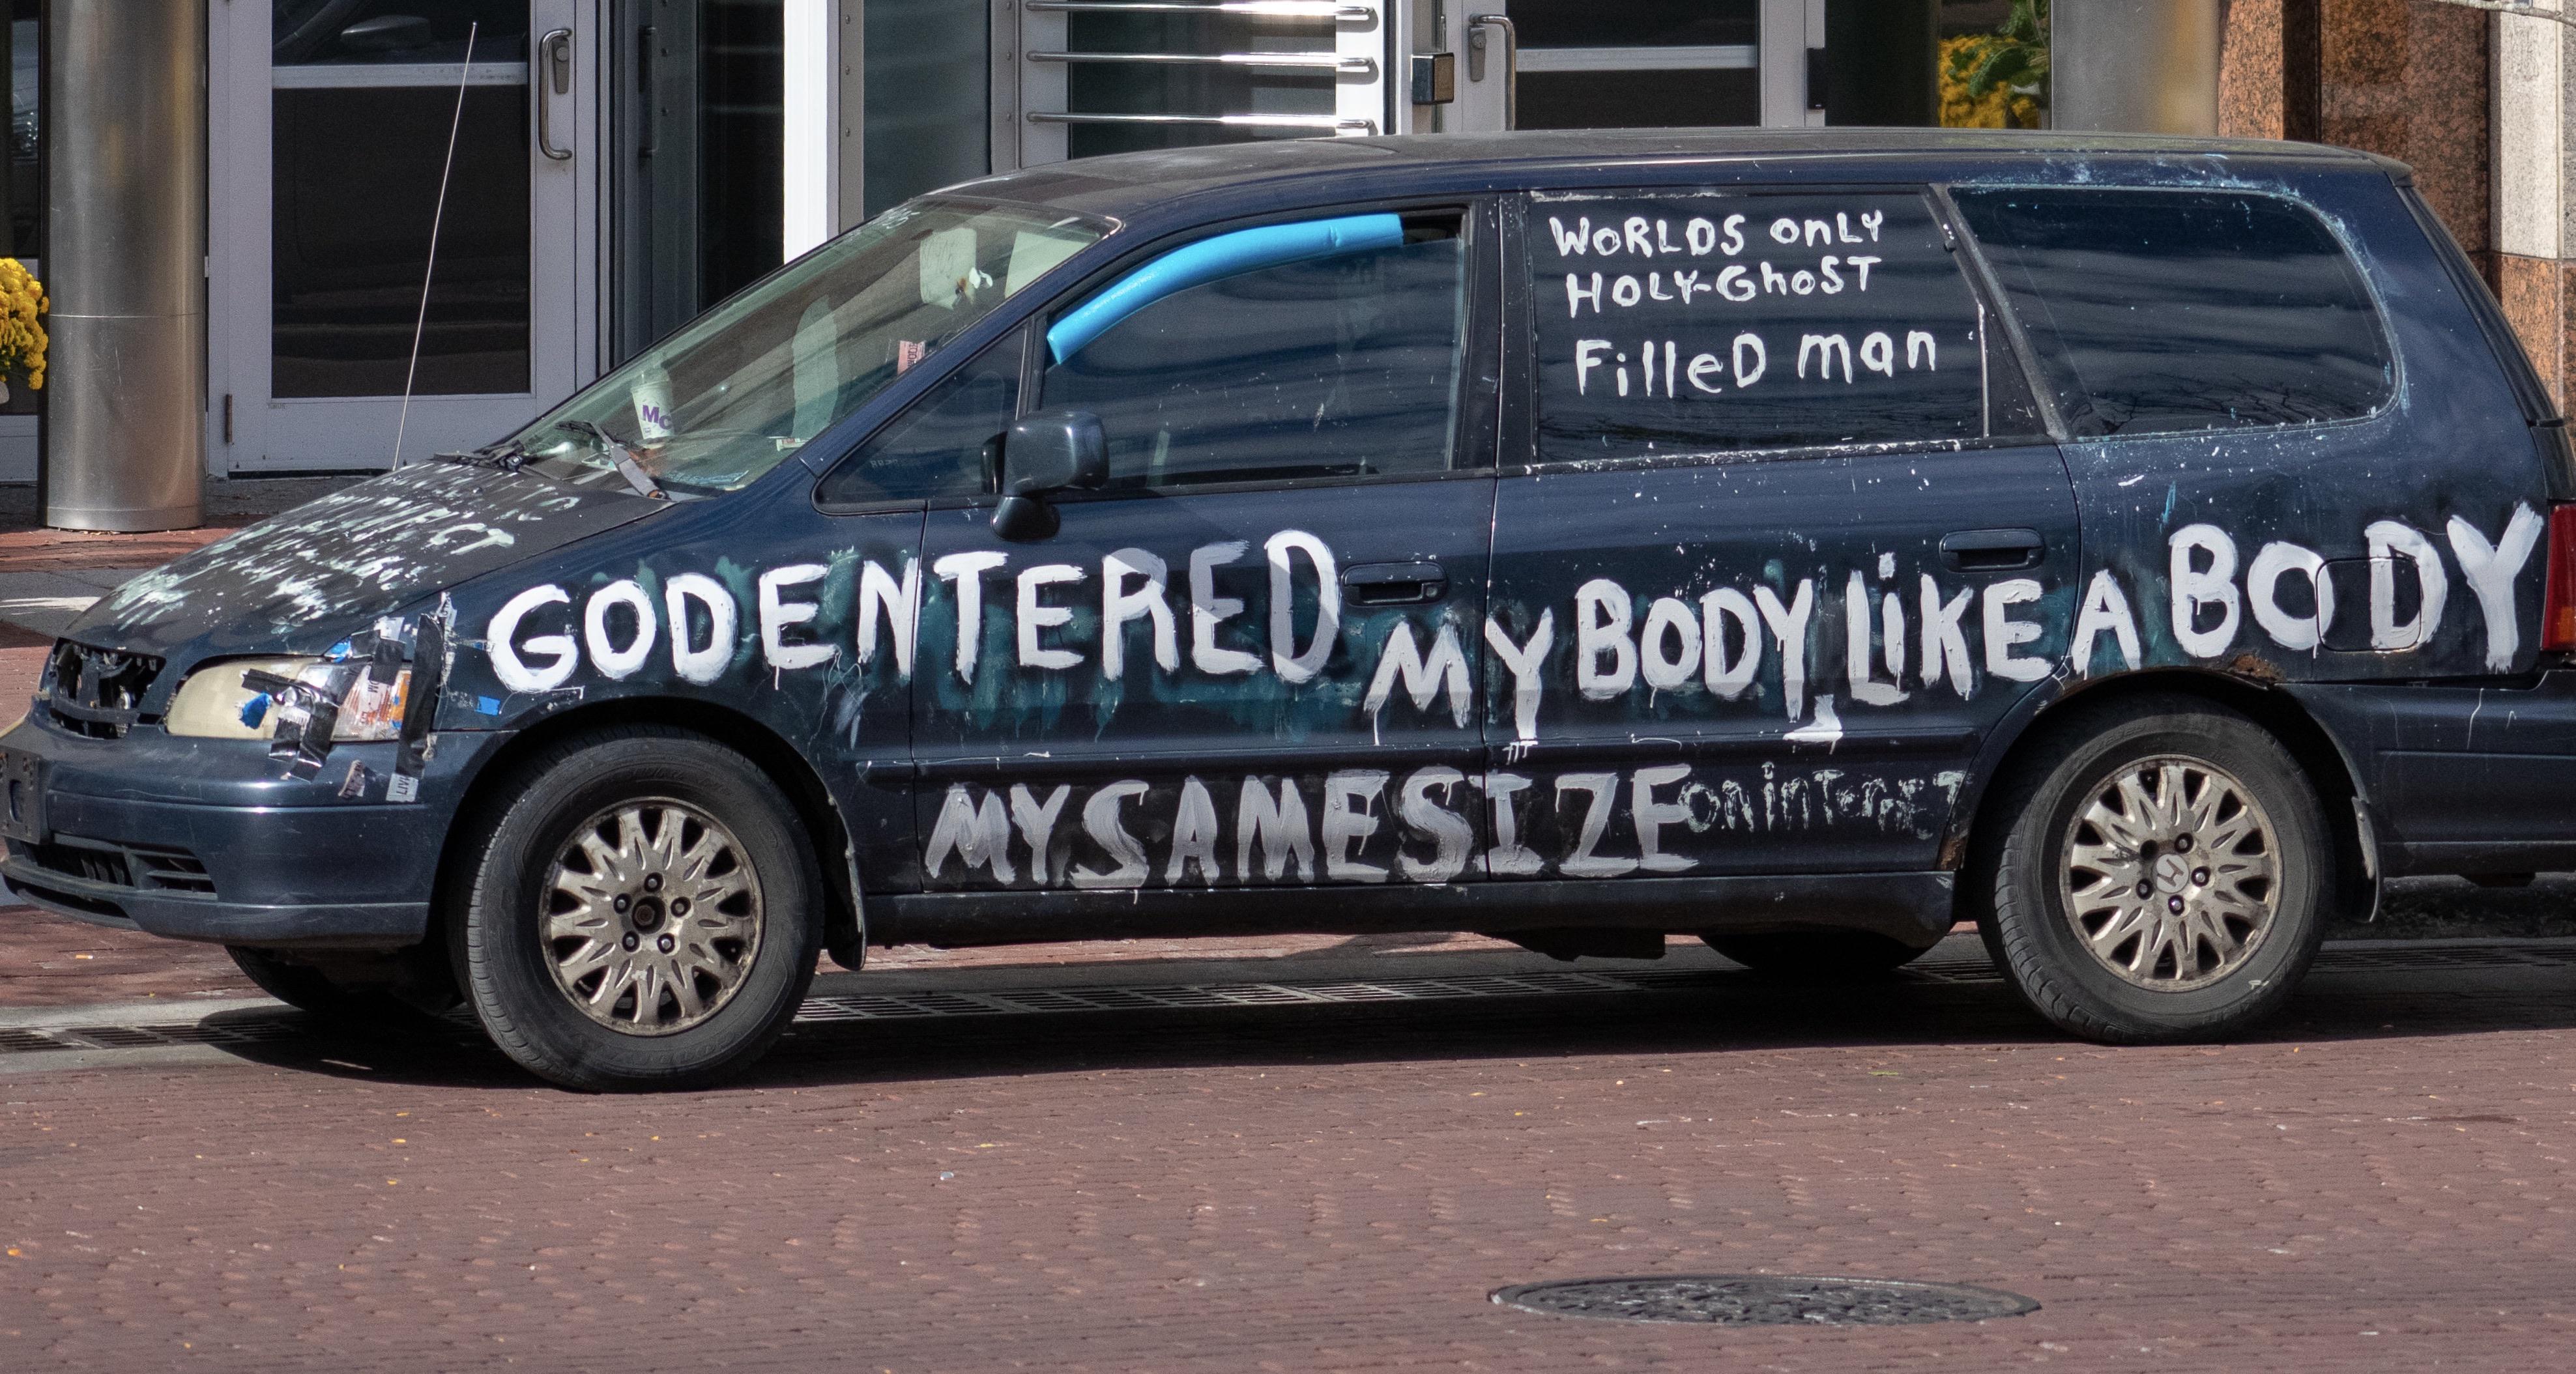 WORLDS ONLY
HOLY-GHOST
FilleD man
GOD ENTERED MY BODY LiKE A BODY
MY SAME SIZE ON inTERNET
MC